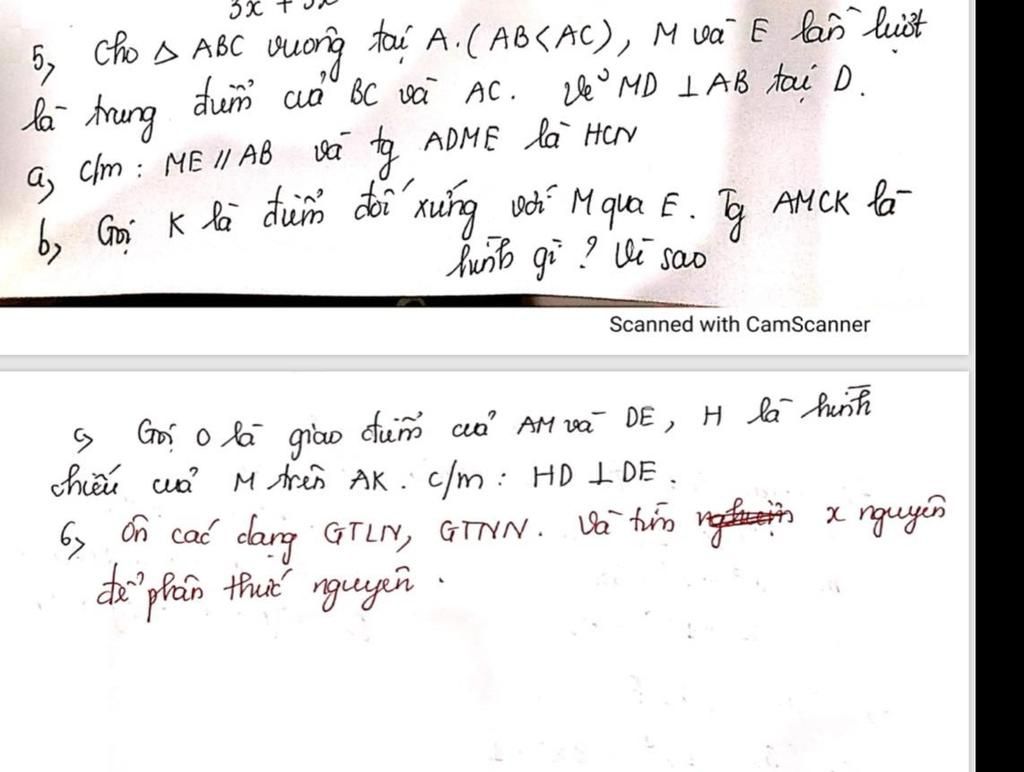 3x + 3x
5, Cho △ ABC vuông tại A. (AB<AC), M và E lần lượt
là trung điểm của BC và AC. Vẽ MD ⊥ AB tại D.
a, c/m : ME // AB và tg ADME là HCN
b, Gọi K là điểm đối xứng với M qua E. Tg AMCK là
hình gì ? Vì sao
Scanned with CamScanner
c, Gọi O là giao điểm của AM và DE, H là hình
chiếu của M trên AK. c/m : HD ⊥ DE.
6, Ôn các dạng GTLN, GTNN. Và tìm x nguyên
để phân thức nguyên.